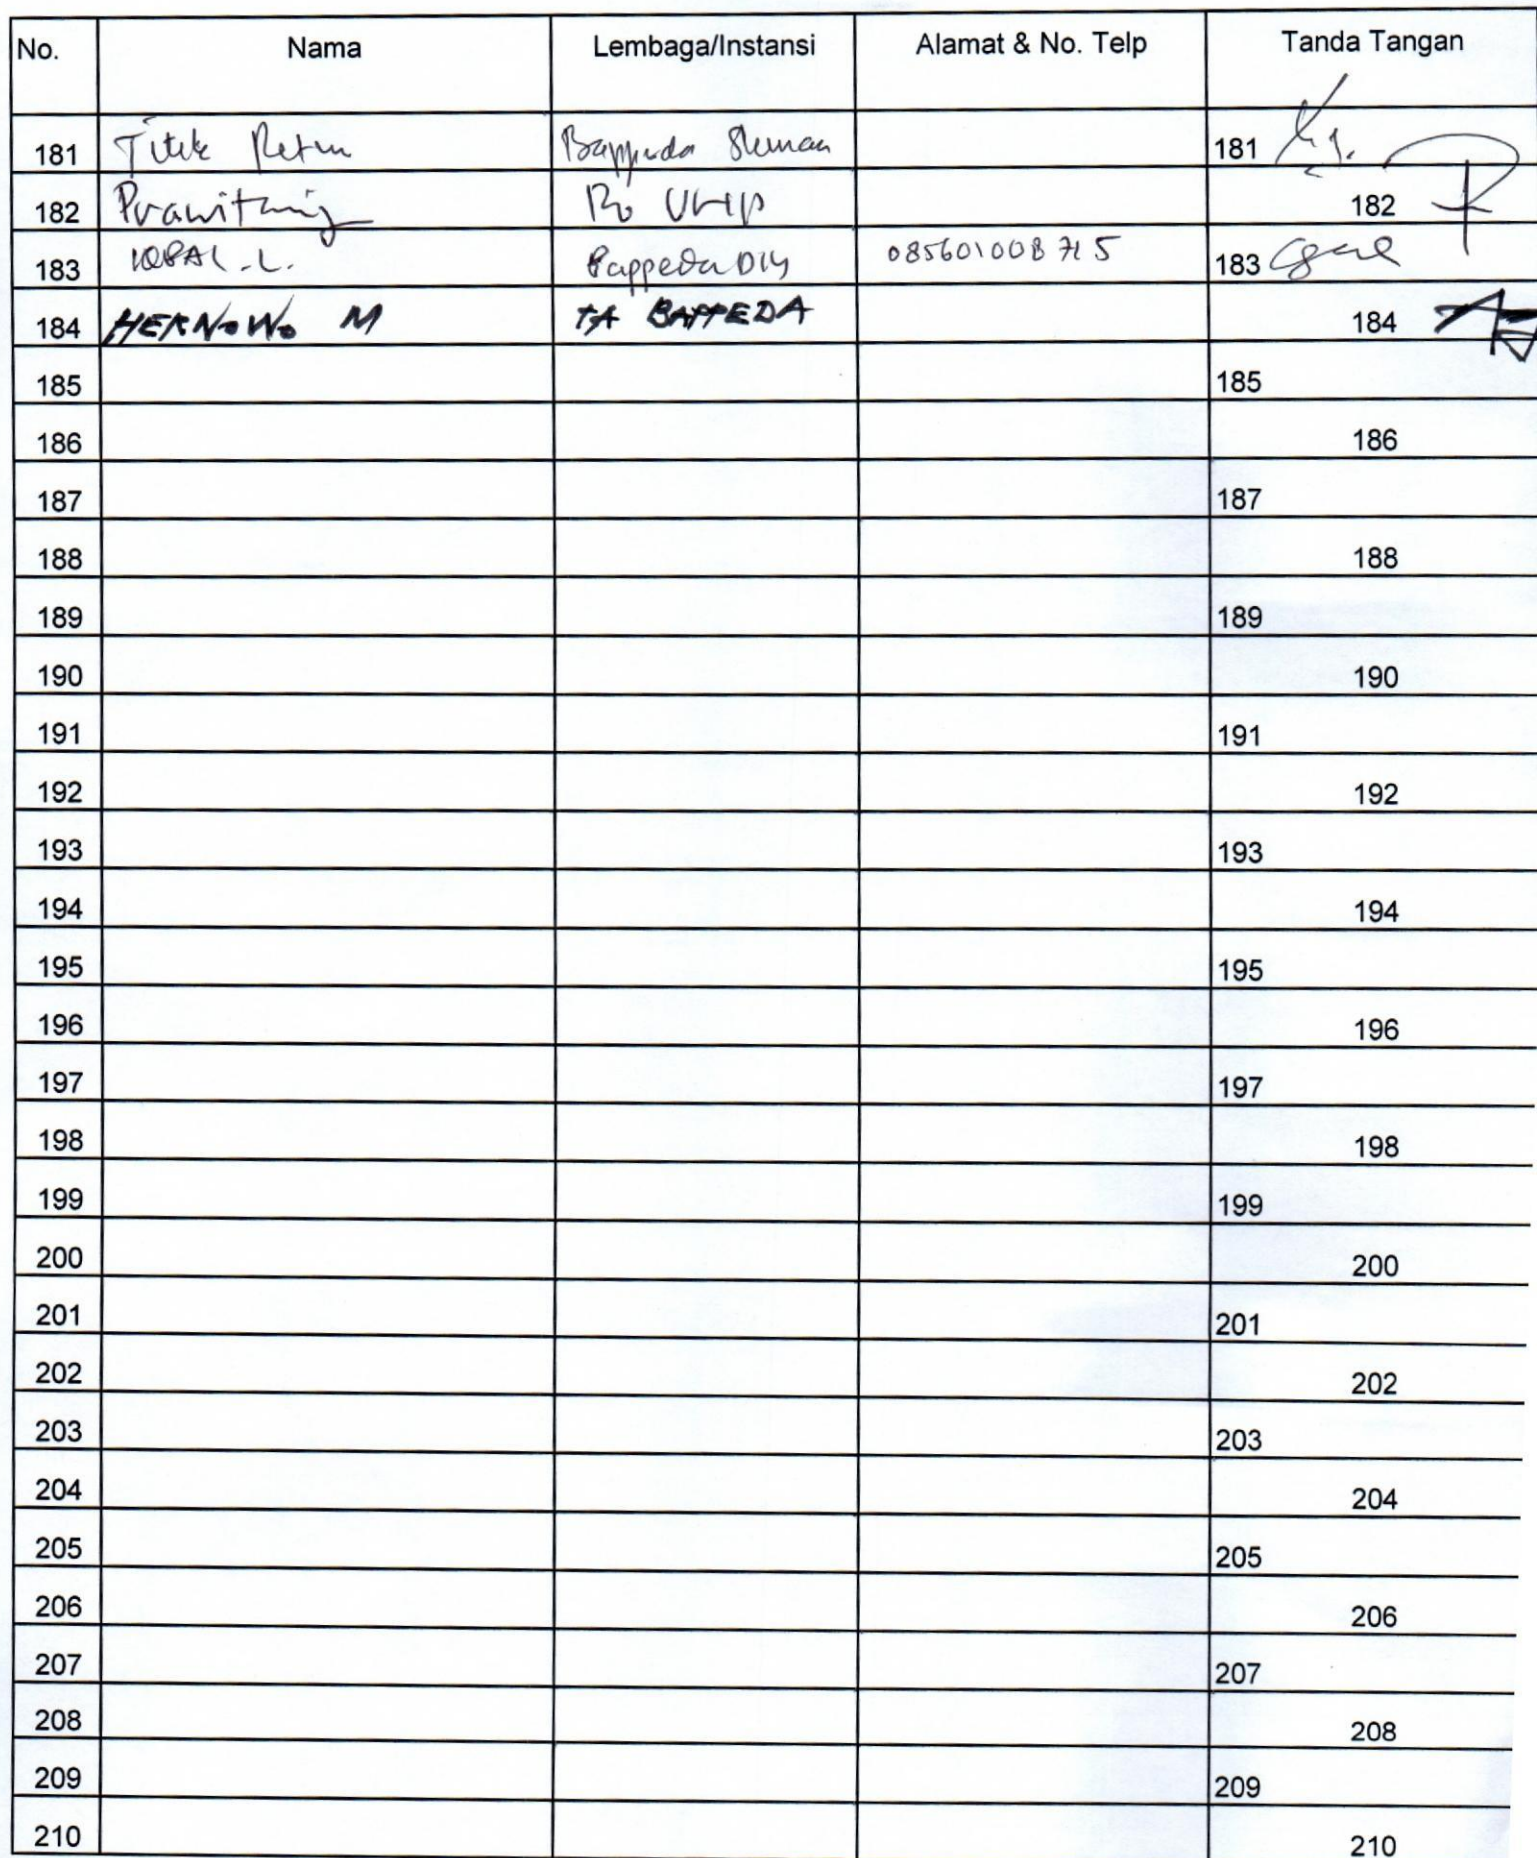 No. Nama Lembaga/Instansi Alamat & No. Telp Tanda Tangan
181 Titik Retno Bappeda Sleman 181
182 Prawitaning 182
183 IQBAL. L. Bappeda DIY 085601008715 183
184 HERNOWO M TA BAPPEDA 184
185 185
186 186
187 187
188 188
189 189
190 190
191 191
192 192
193 193
194 194
195 195
196 196
197 197
198 198
199 199
200 200
201 201
202 202
203 203
204 204
205 205
206 206
207 207
208 208
209 209
210 210